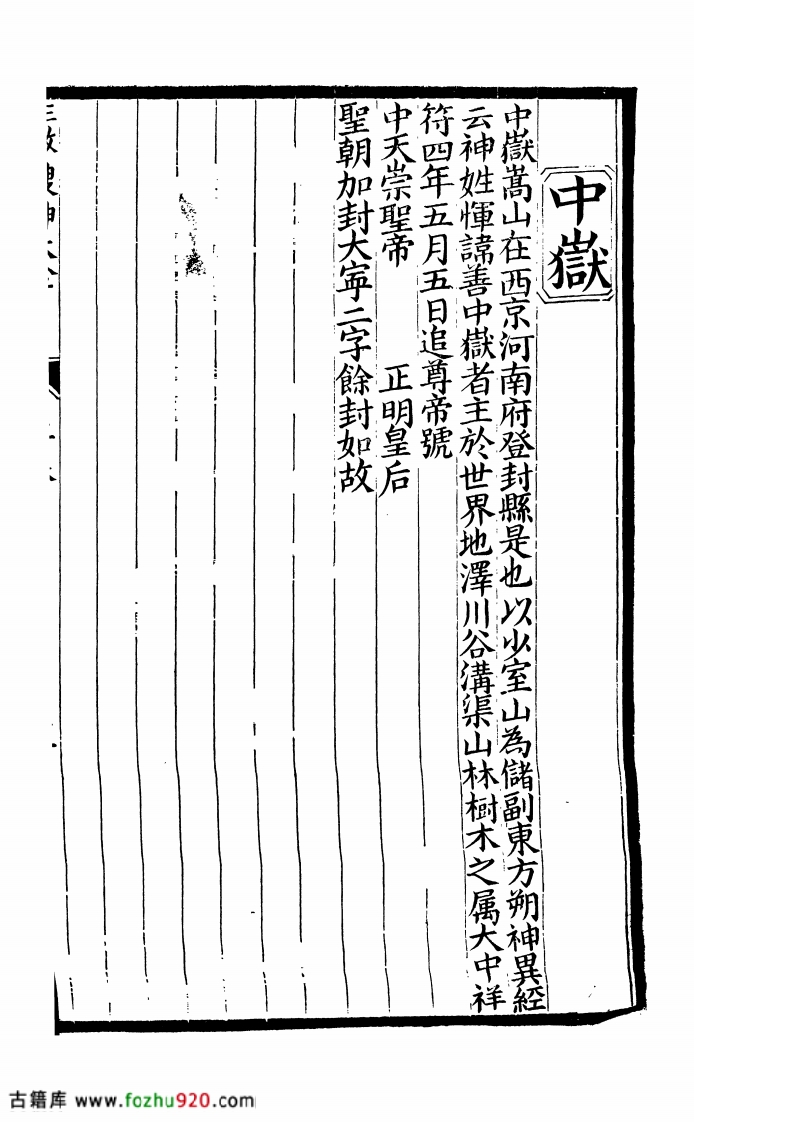 中嶽
中嶽嵩山在西京河南府登封縣是也以少室山為儲副東方朔神異經
云神姓惲諱善中嶽者主於世界地澤川谷溝渠山林樹木之属大中祥
符四年五月五日追尊帝號
中天崇聖帝　　正明皇后
聖朝加封大寧二字餘封如故
古籍库 www.fozhu920.com